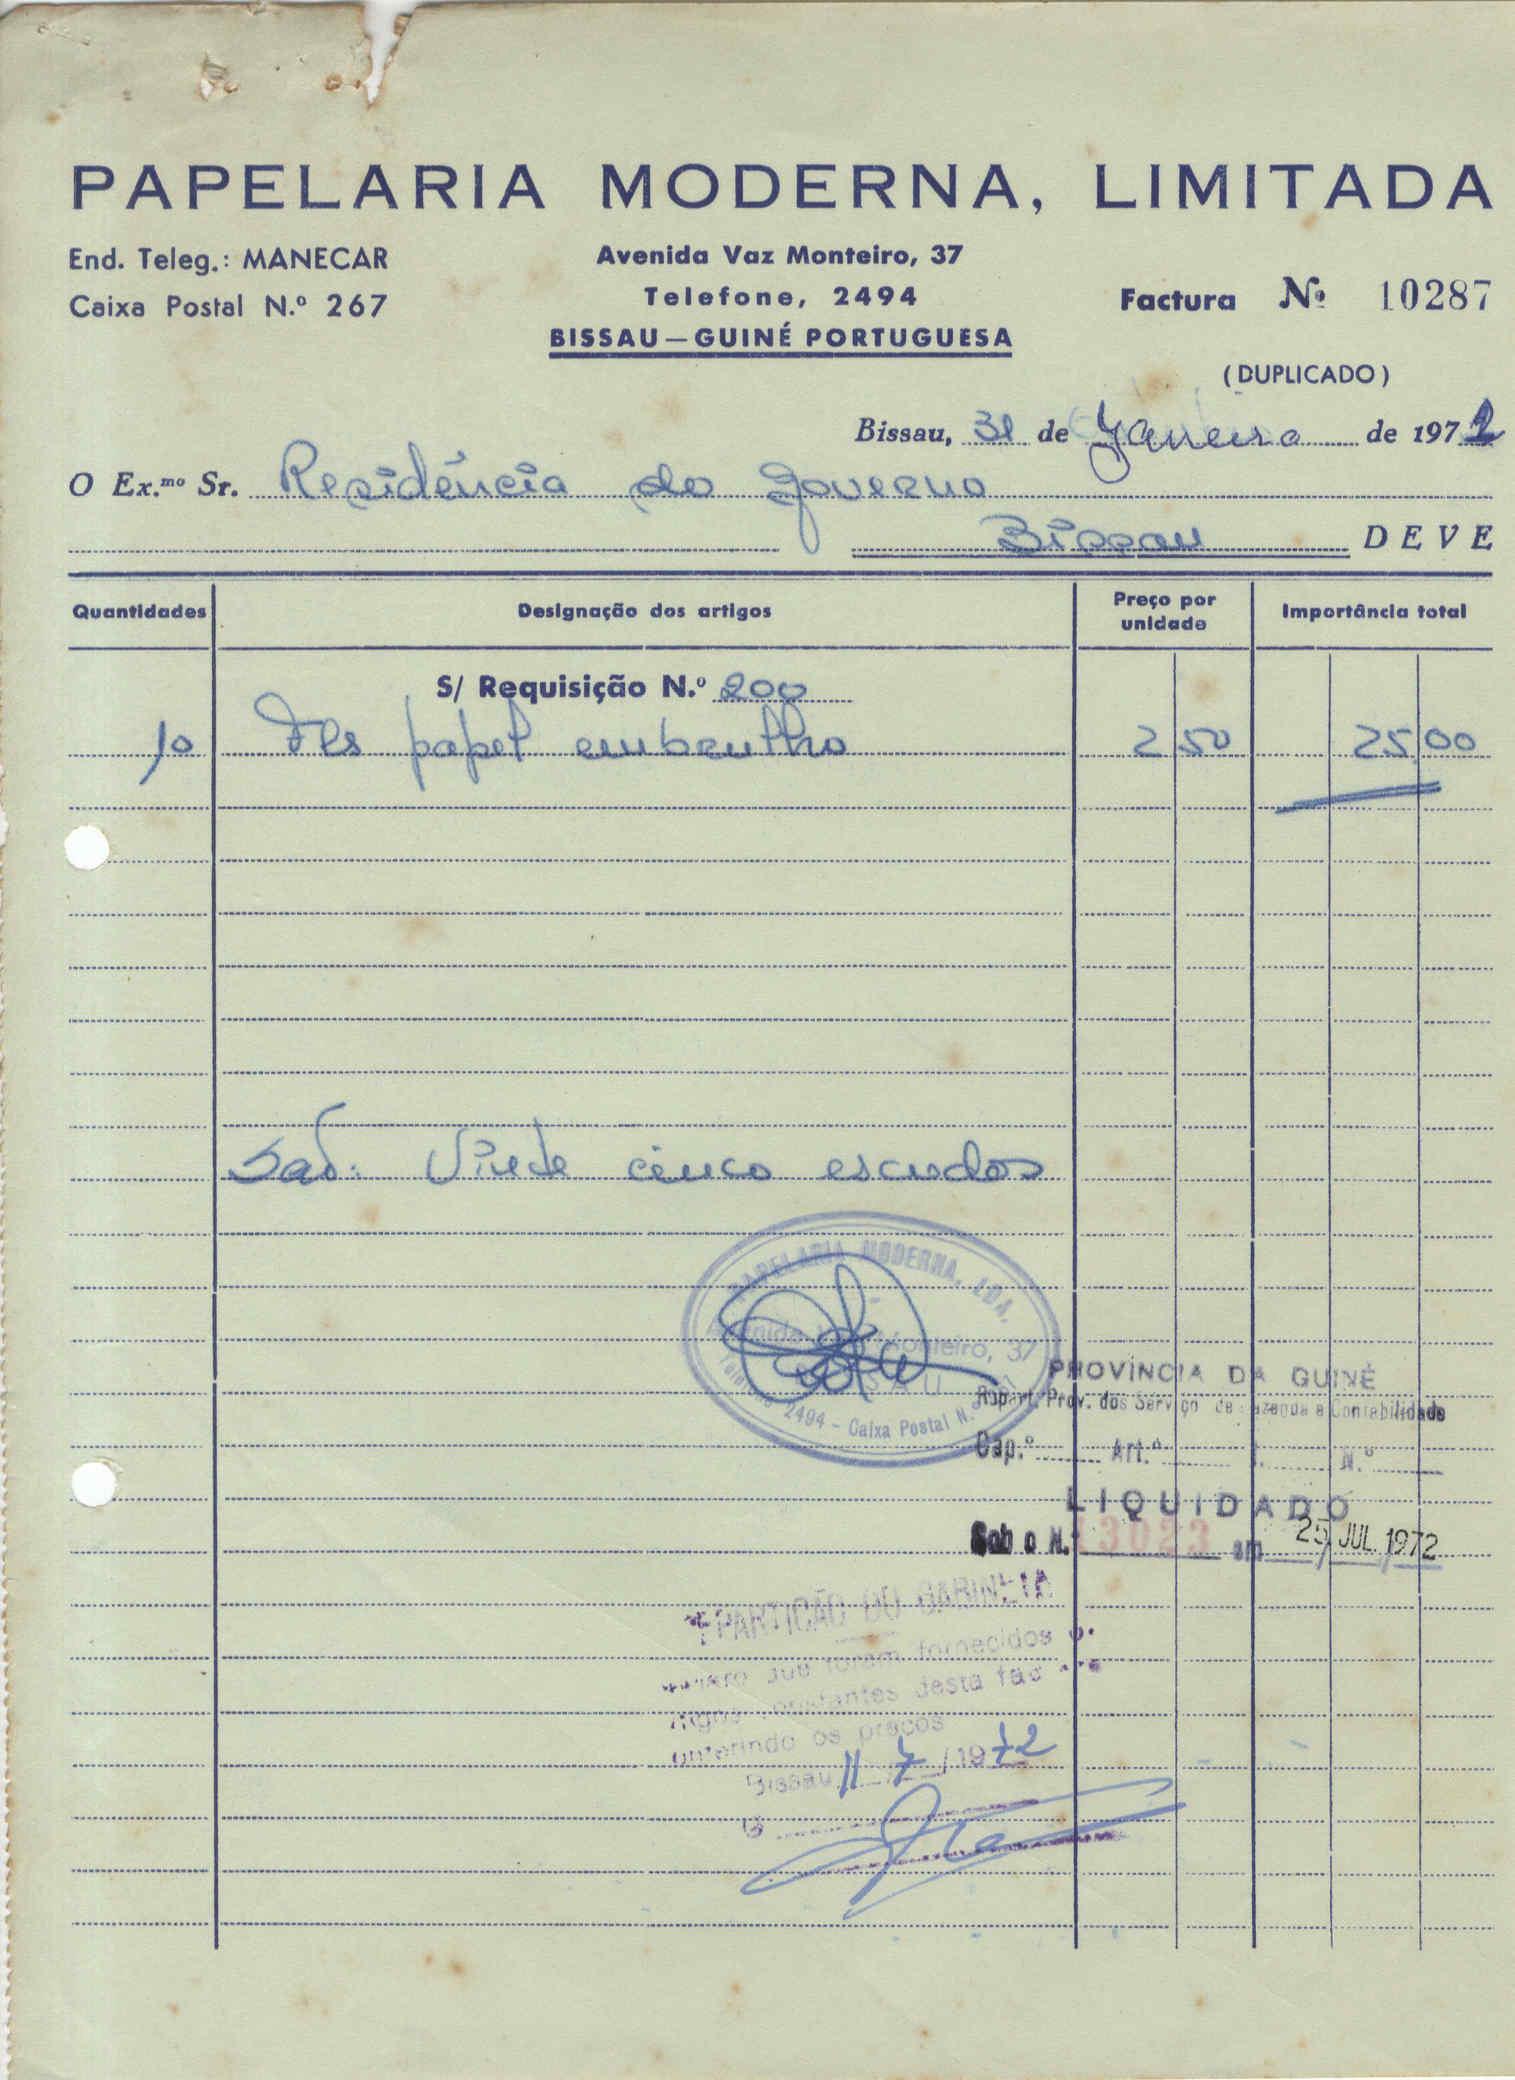 PAPELARIA MODERNA, LIMITADA
End. Teleg.: MANECAR
Caixa Postal N.º 267
Avenida Vaz Monteiro, 37
Telefone, 2494
BISSAU — GUINÉ PORTUGUESA
Factura Nº 10287
(DUPLICADO)
Bissau, 31 de Janeiro de 1972
O Ex.mo Sr. Residência do Governo
Bissau DEVE
Quantidades Designação dos artigos Preço por unidade Importância total
S/ Requisição N.º 200
10 Fls papel embrulho 2 50 25,00
São: Vinte cinco escudos
PAPELARIA MODERNA, LDA.
Avenida Vaz Monteiro, 37
BISSAU
Telefone 2494 - Caixa Postal N.º
PROVÍNCIA DA GUINÉ
Repart. Prov. dos Serviço de Fazenda e Contabilidade
Cap.º Art.º N.º
LIQUIDADO
Sob o N.º 13023 em 25 JUL. 1972
REPARTIÇÃO DO GABINETE
que foram fornecidos
constantes desta
os preços
Bissau 11/7/1972
O